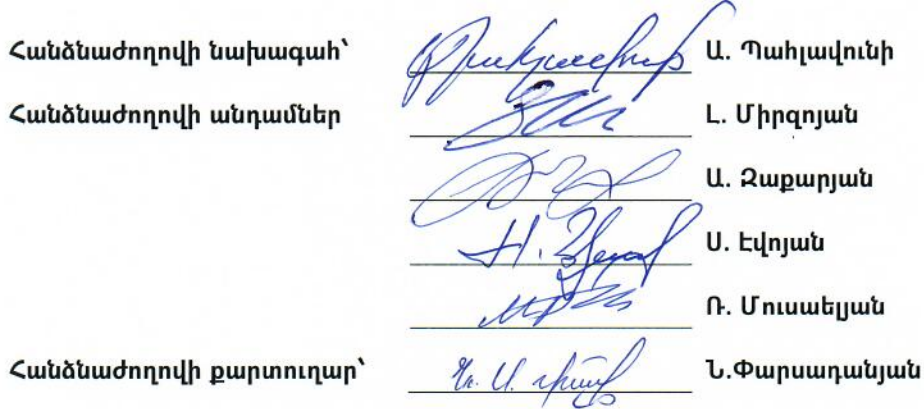 Հանձնաժողովի նախագահ՝ Ա. Պահլավունի
Հանձնաժողովի անդամներ Լ. Միրզոյան
Ա. Զաքարյան
Ս. Էվոյան
Ռ. Մուսաելյան
Հանձնաժողովի քարտուղար՝ Ն.Փարսադանյան